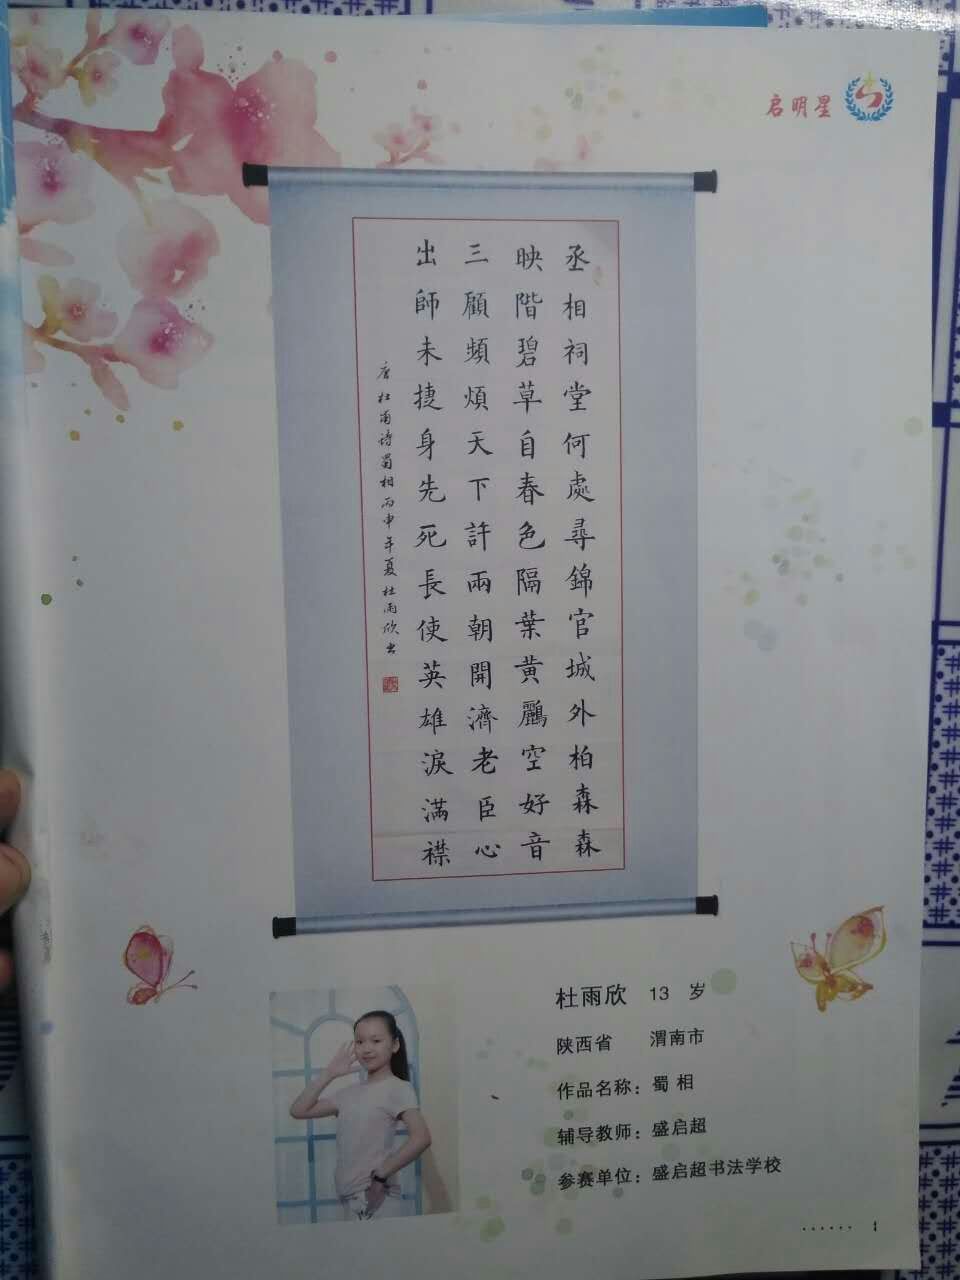 启明星
丞相祠堂何處尋錦官城外柏森森
映階碧草自春色隔葉黄鸝空好音
三顧頻煩天下計兩朝開濟老臣心
出師未捷身先死長使英雄淚滿襟
唐杜甫詩蜀相丙申年夏杜雨欣书
杜雨欣 13 岁
陕西省 渭南市
作品名称：蜀 相
辅导教师：盛启超
参赛单位：盛启超书法学校
...... 1